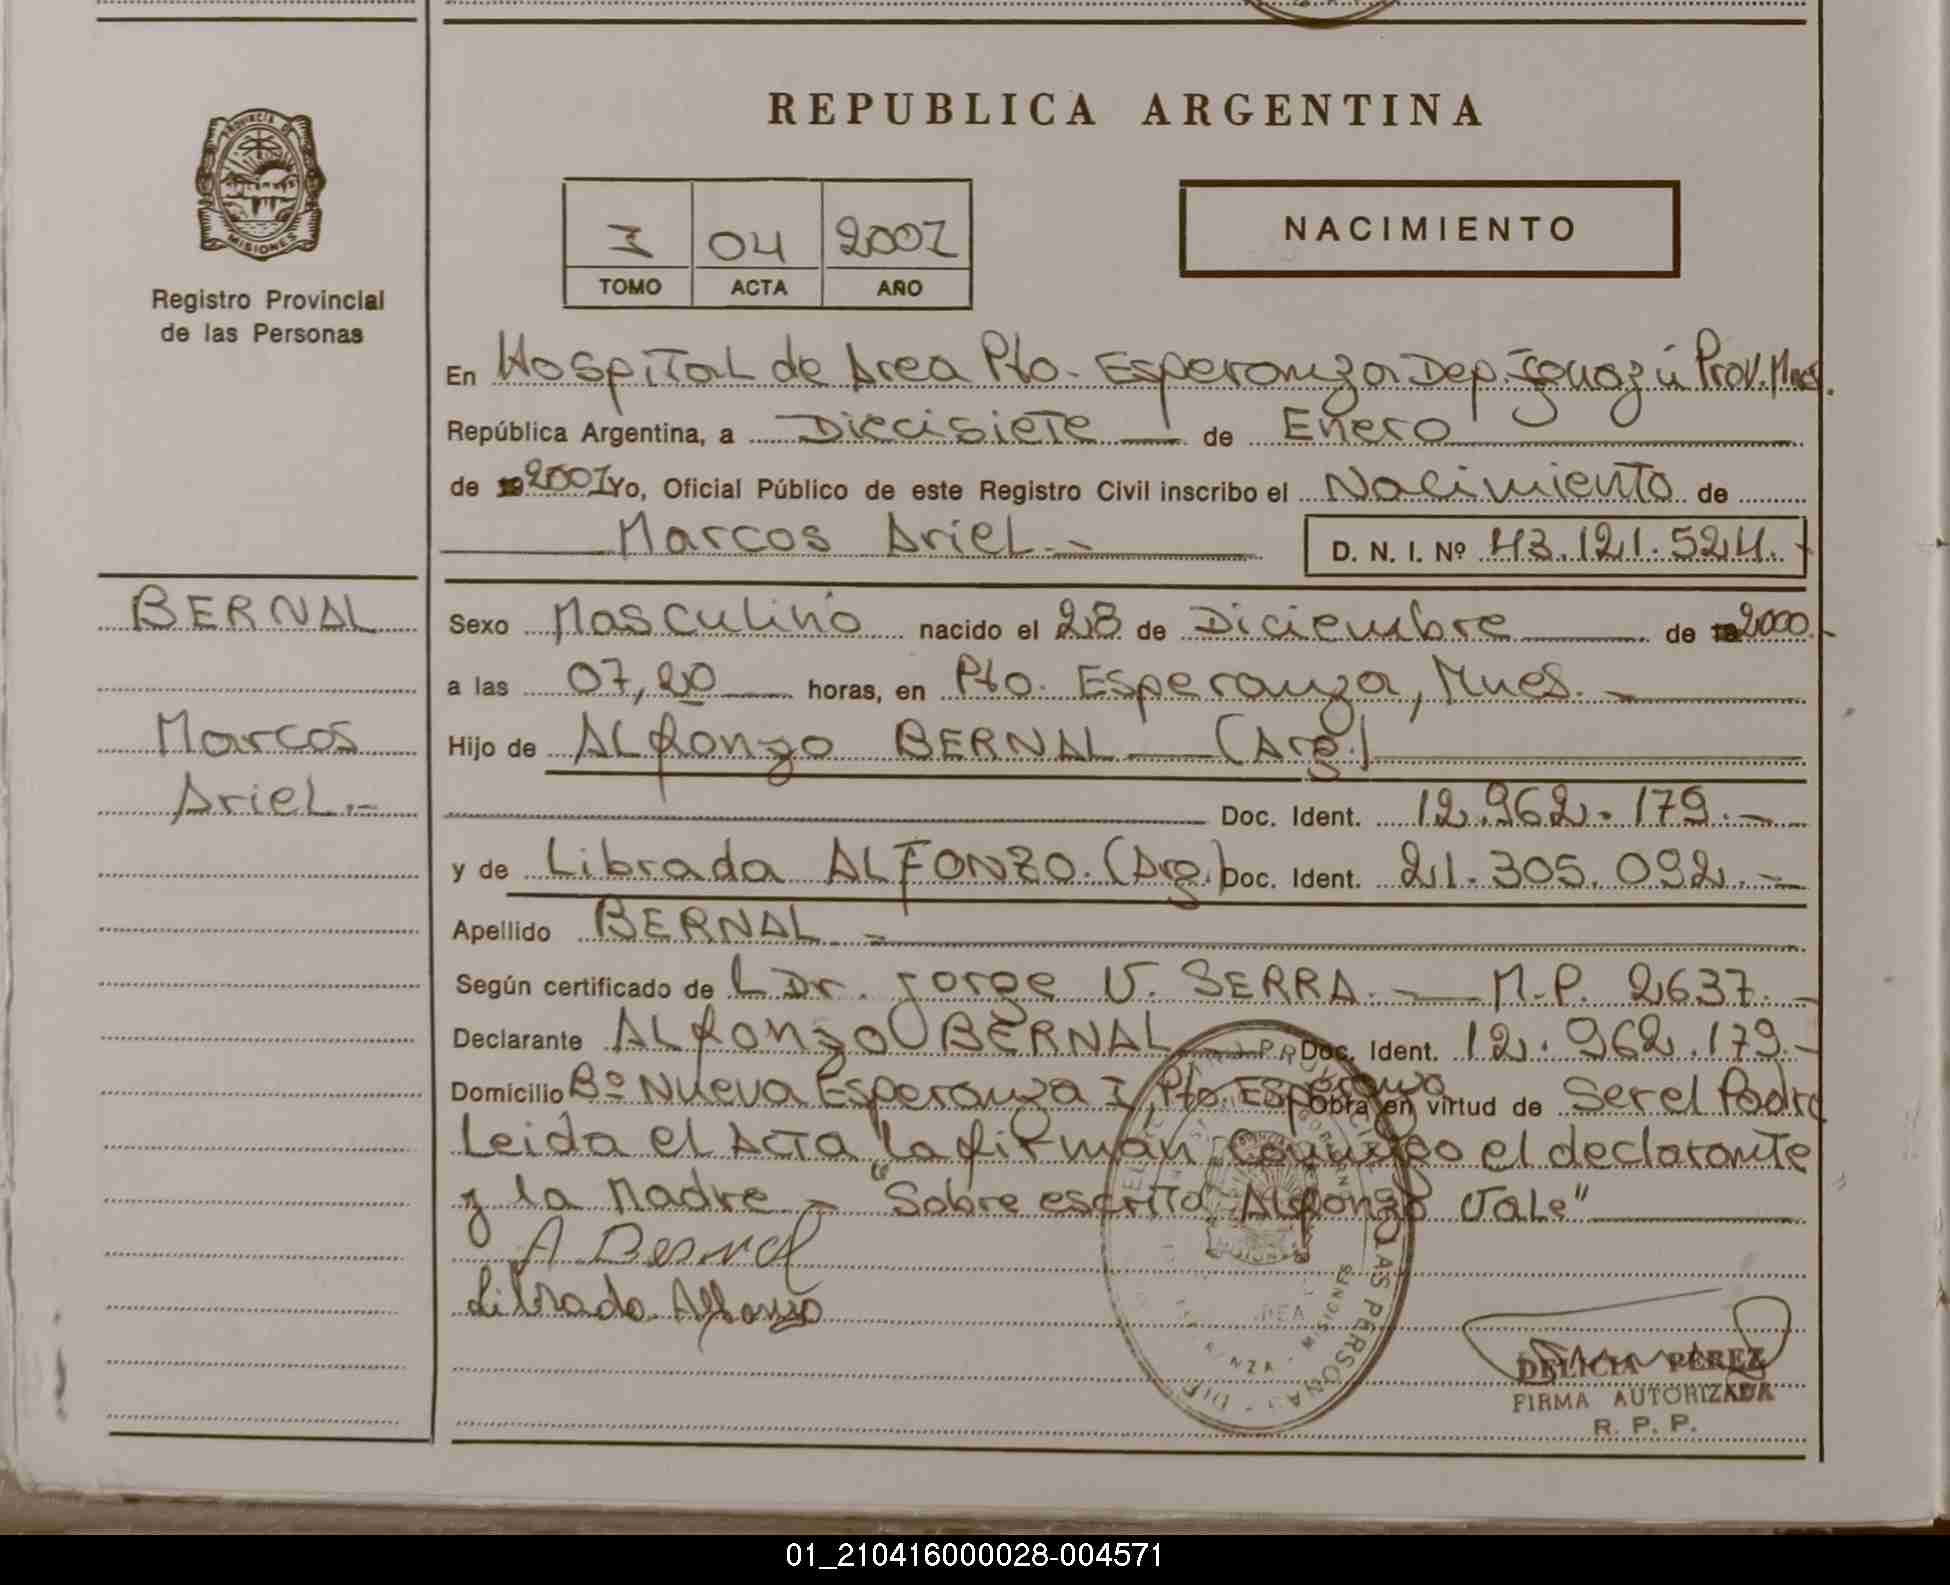 REPUBLICA ARGENTINA
PROVINCIA DE
MISIONES
Registro Provincial
de las Personas
I 04 2001
TOMO ACTA AÑO
NACIMIENTO
En Hospital de Area Pto. Esperanza Dep. Iguazú Prov. Mnes.
República Argentina, a Diecisiete de Enero
de 2001 Yo, Oficial Público de este Registro Civil inscribo el Nacimiento de
Marcos Ariel.-
D. N. I. Nº 43.121.524.-
BERNAL
Marcos
Ariel.-
Sexo Masculino nacido el 28 de Diciembre de 2000.-
a las 07,20 horas, en Pto. Esperanza, Mnes.-
Hijo de ALfonzo BERNAL (Arg.)
Doc. Ident. 12.962.179.-
y de Librada ALFONZO. (Arg.) Doc. Ident. 21.305.092.-
Apellido BERNAL.-
Según certificado de L Dr. Jorge V. SERRA.- M.P. 2637.-
Declarante ALfonzo BERNAL Doc. Ident. 12.962.179.-
Domicilio Bº Nueva Esperanza I, Pto. Esperanza Obra en virtud de Ser el Padre
Leida el Acta la firman conmigo el declarante
y la Madre.- "Sobre escrito Alfonzo Vale"
A Bernal
Librada Alfonzo
DELICIA PEREZ
FIRMA AUTORIZADA
R. P. P.
01_210416000028-004571